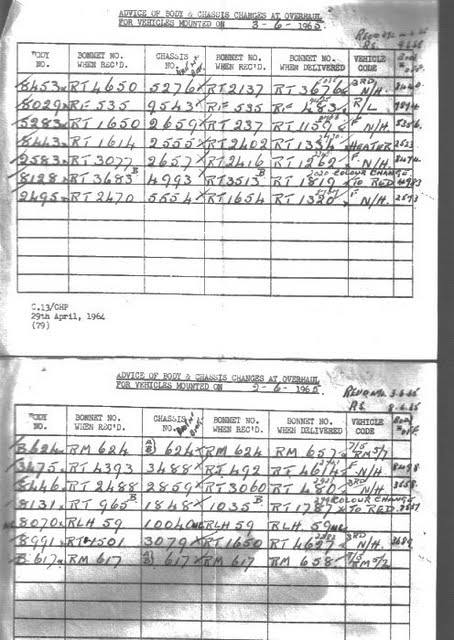 ADVICE OF BODY & CHASSIS CHANGES AT OVERHAUL
FOR VEHICLES MOUNTED ON 3-6-1965
BODY NO. BONNET NO. WHEN REC'D. CHASSIS NO. BONNET NO. WHEN REC'D. BONNET NO. WHEN DELIVERED VEHICLE CODE
8453 RT 4650 5276 RT 2137 RT 3676 3RD N/H.
8029 RF 535 9543 RF 535 RF 483 R/L
5283 RT 1650 2659 RT 237 RT 1159 F N/H.
8443 RT 1614 2555 RT 2402 RT 1334 HEATER
2583 RT 3077 2657 RT 2416 RT 1262 F N/H.
8128 RT 3683 B 4993 RT 3513 B RT 1819 COLOUR CHANGE TO RED
2495 RT 2470 5554 RT 1654 RT 1320 F N/H.
C.13/CHP
29th April, 1964
(79)
ADVICE OF BODY & CHASSIS CHANGES AT OVERHAUL
FOR VEHICLES MOUNTED ON 2-6-1965
BODY NO. BONNET NO. WHEN REC'D. CHASSIS NO. BONNET NO. WHEN REC'D. BONNET NO. WHEN DELIVERED VEHICLE CODE
B.624 RM 624 624 RM 624 RM 657 RM 5/7
3475 RT 4393 3488 RT 492 RT 4614 F N/H
8446 RT 2488 2859 RT 3060 RT 480 N/H.
8131 RT 965 B 1848 1035 B RT 1787 COLOUR CHANGE TO RED
8070 RLH 59 10040 RLH 59 RLH 59
8991 RT 4501 3079 RT 1650 RT 4627 3RD N/H.
B.617 RM 617 617 RM 617 RM 658 RM 5/7